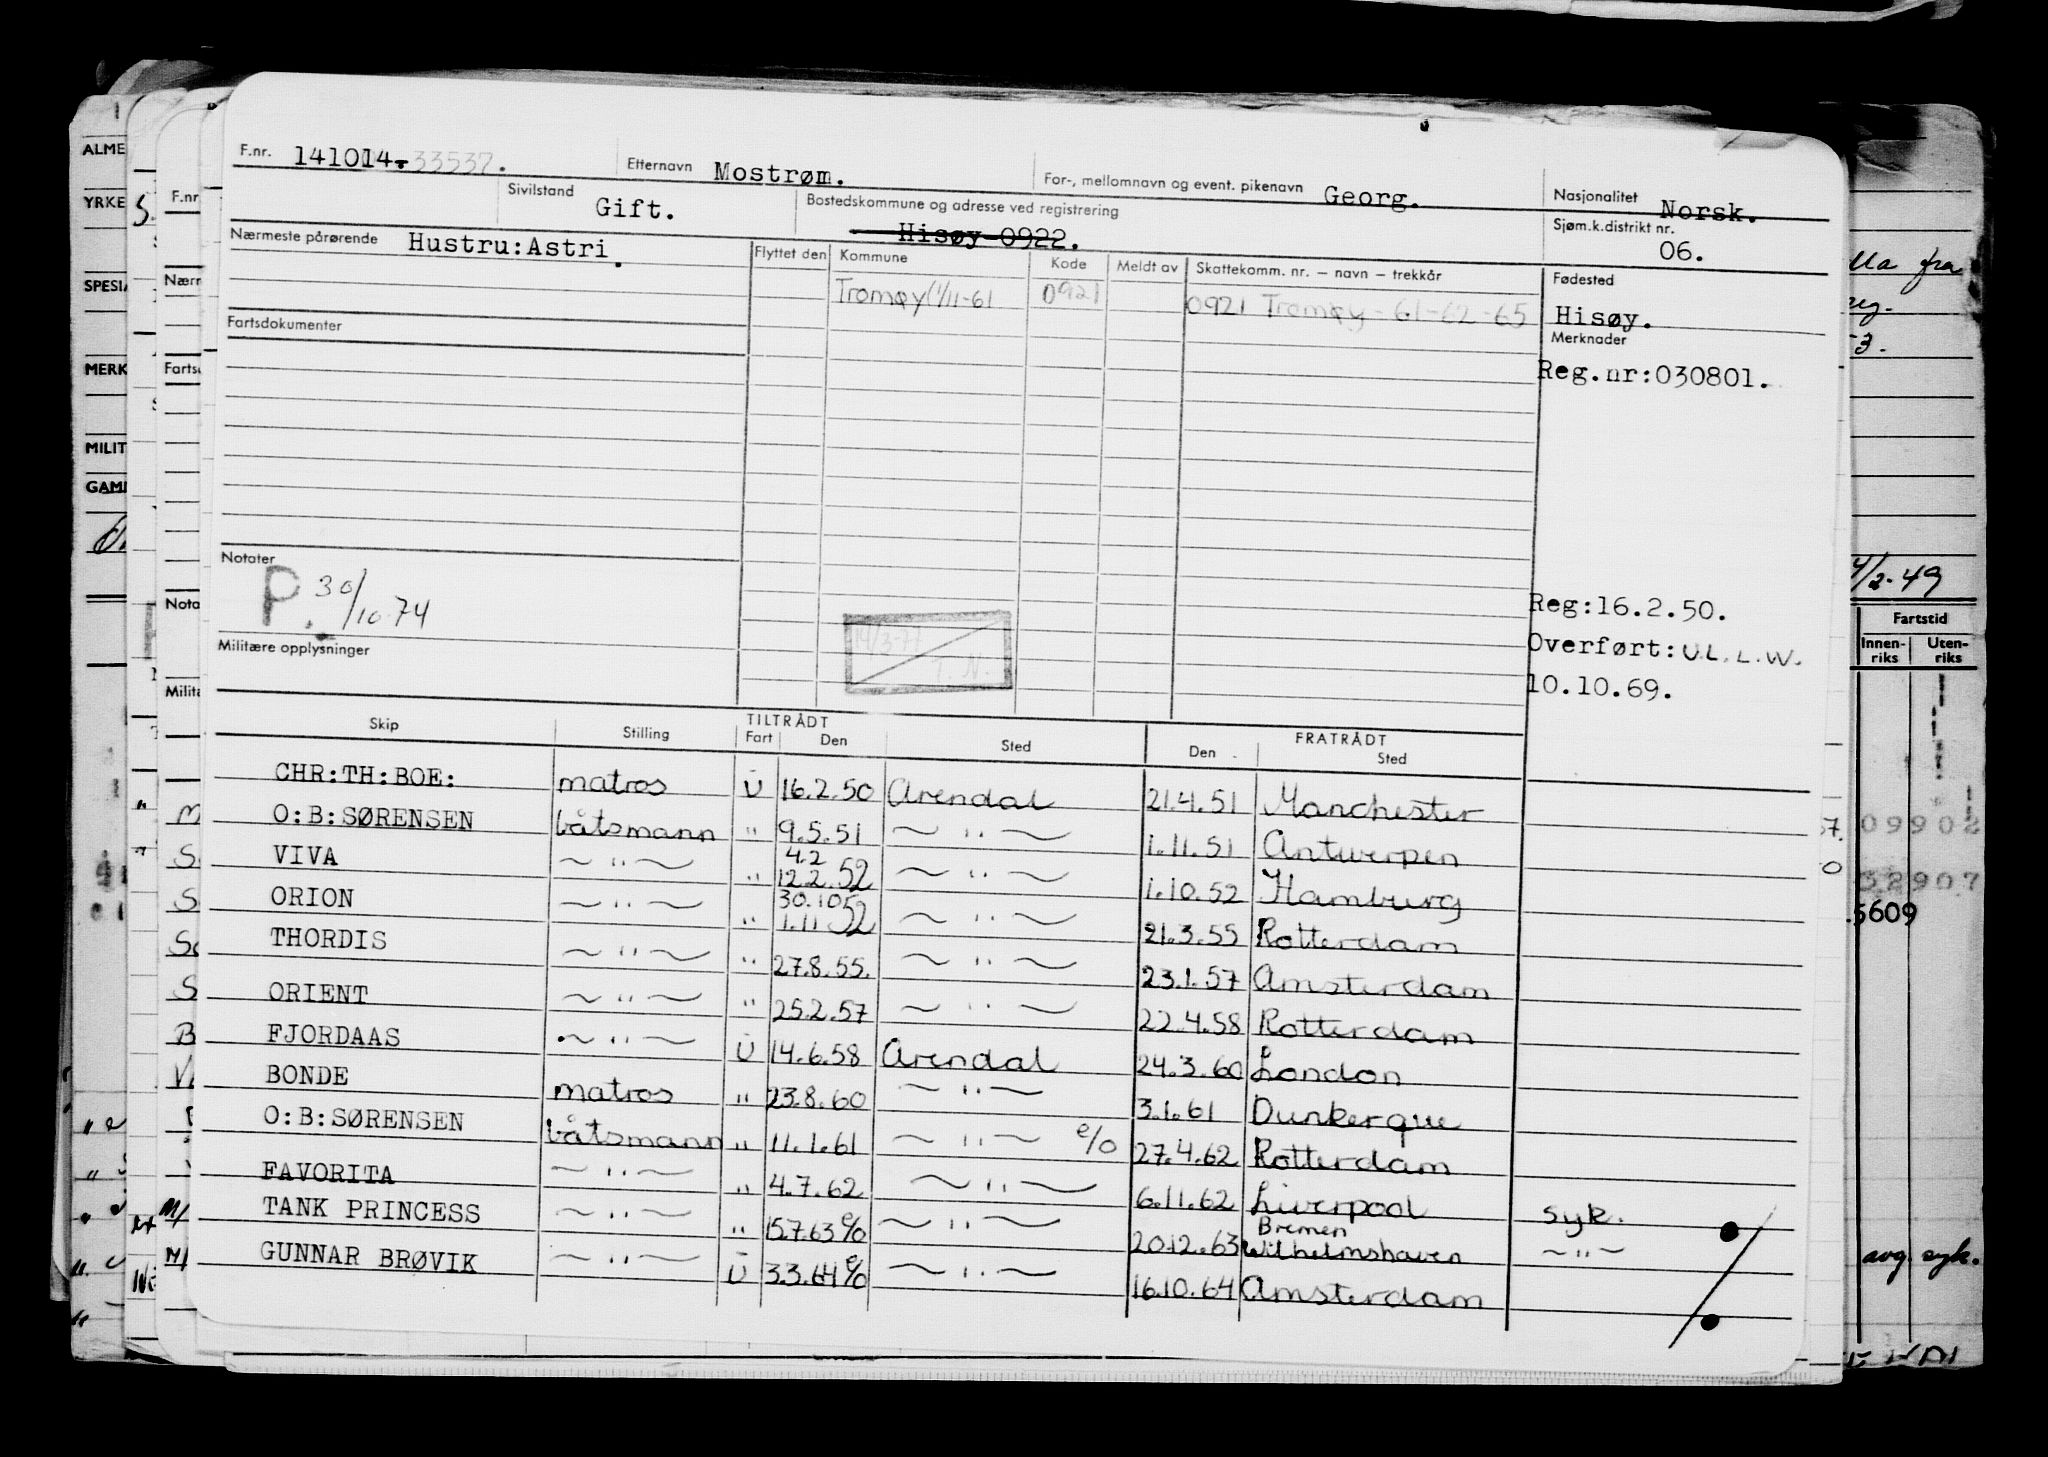 F.nr. 141014-33537.
Etternavn Mostrøm.
For-, mellomnavn og event. pikenavn Georg.
Nasjonalitet Norsk.
Sivilstand Gift.
Bostedskommune og adresse ved registrering
Hisøy 0922.
Sjøm.k.distrikt nr. 06.
Nærmeste pårørende Hustru:Astri.
Flyttet den Kommune Kode Meldt av Skattekomm. nr. – navn – trekkår
Fødested
Tromøy (1/11-61 0921 0921 Tromøy - 61-62-65
Hisøy.
Fartsdokumenter
Merknader
Reg.nr:030801.
Notater
P. 30/10-74
14/3-77
T.N.
Reg:16.2.50.
Overført: U.L.L.W.
10.10.69.
Militære opplysninger
Skip Stilling TILTRÅDT Fart Den Sted FRATRÅDT Den Sted
CHR:TH:BOE: matros U 16.2.50 Arendal 21.4.51 Manchester
O:B:SØRENSEN båtsmann " 9.5.51 ~ " ~ 1.11.51 Antwerpen
VIVA ~ " ~ " 4.2 12.2.52 ~ " ~ 1.10.52 Hamburg
ORION ~ " ~ " 30.10 1.11 52 ~ " ~ 21.3.55 Rotterdam
THORDIS ~ " ~ " 27.8.55. ~ " ~ 23.1.57 Amsterdam
ORIENT ~ " ~ " 25.2.57 ~ " ~ 22.4.58 Rotterdam
FJORDAAS ~ " ~ U 14.6.58 Arendal 24.3.60 London
BONDE matros " 23.8.60 ~ " ~ 3.1.61 Dunkerque
O:B:SØRENSEN båtsmann " 11.1.61 ~ " ~ e/o 27.4.62 Rotterdam
FAVORITA ~ " ~ " 4.7.62 ~ " ~ 6.11.62 Liverpool syk.
TANK PRINCESS ~ " ~ " 15.7.63 e/o ~ " ~ 20.12.63 Bremen Wilhelmshaven ~ " ~
GUNNAR BRØVIK ~ " ~ U 3.3.64 e/o ~ " ~ 16.10.64 Amsterdam
ALME
YRKE
SPESIA
MERK
MILIT
GAMM
F.nr
Nærm
Fartsd
Nota
Milita
4/2-49
Fartstid
Innenriks Utenriks
09902
32907
5609
avg. syk.